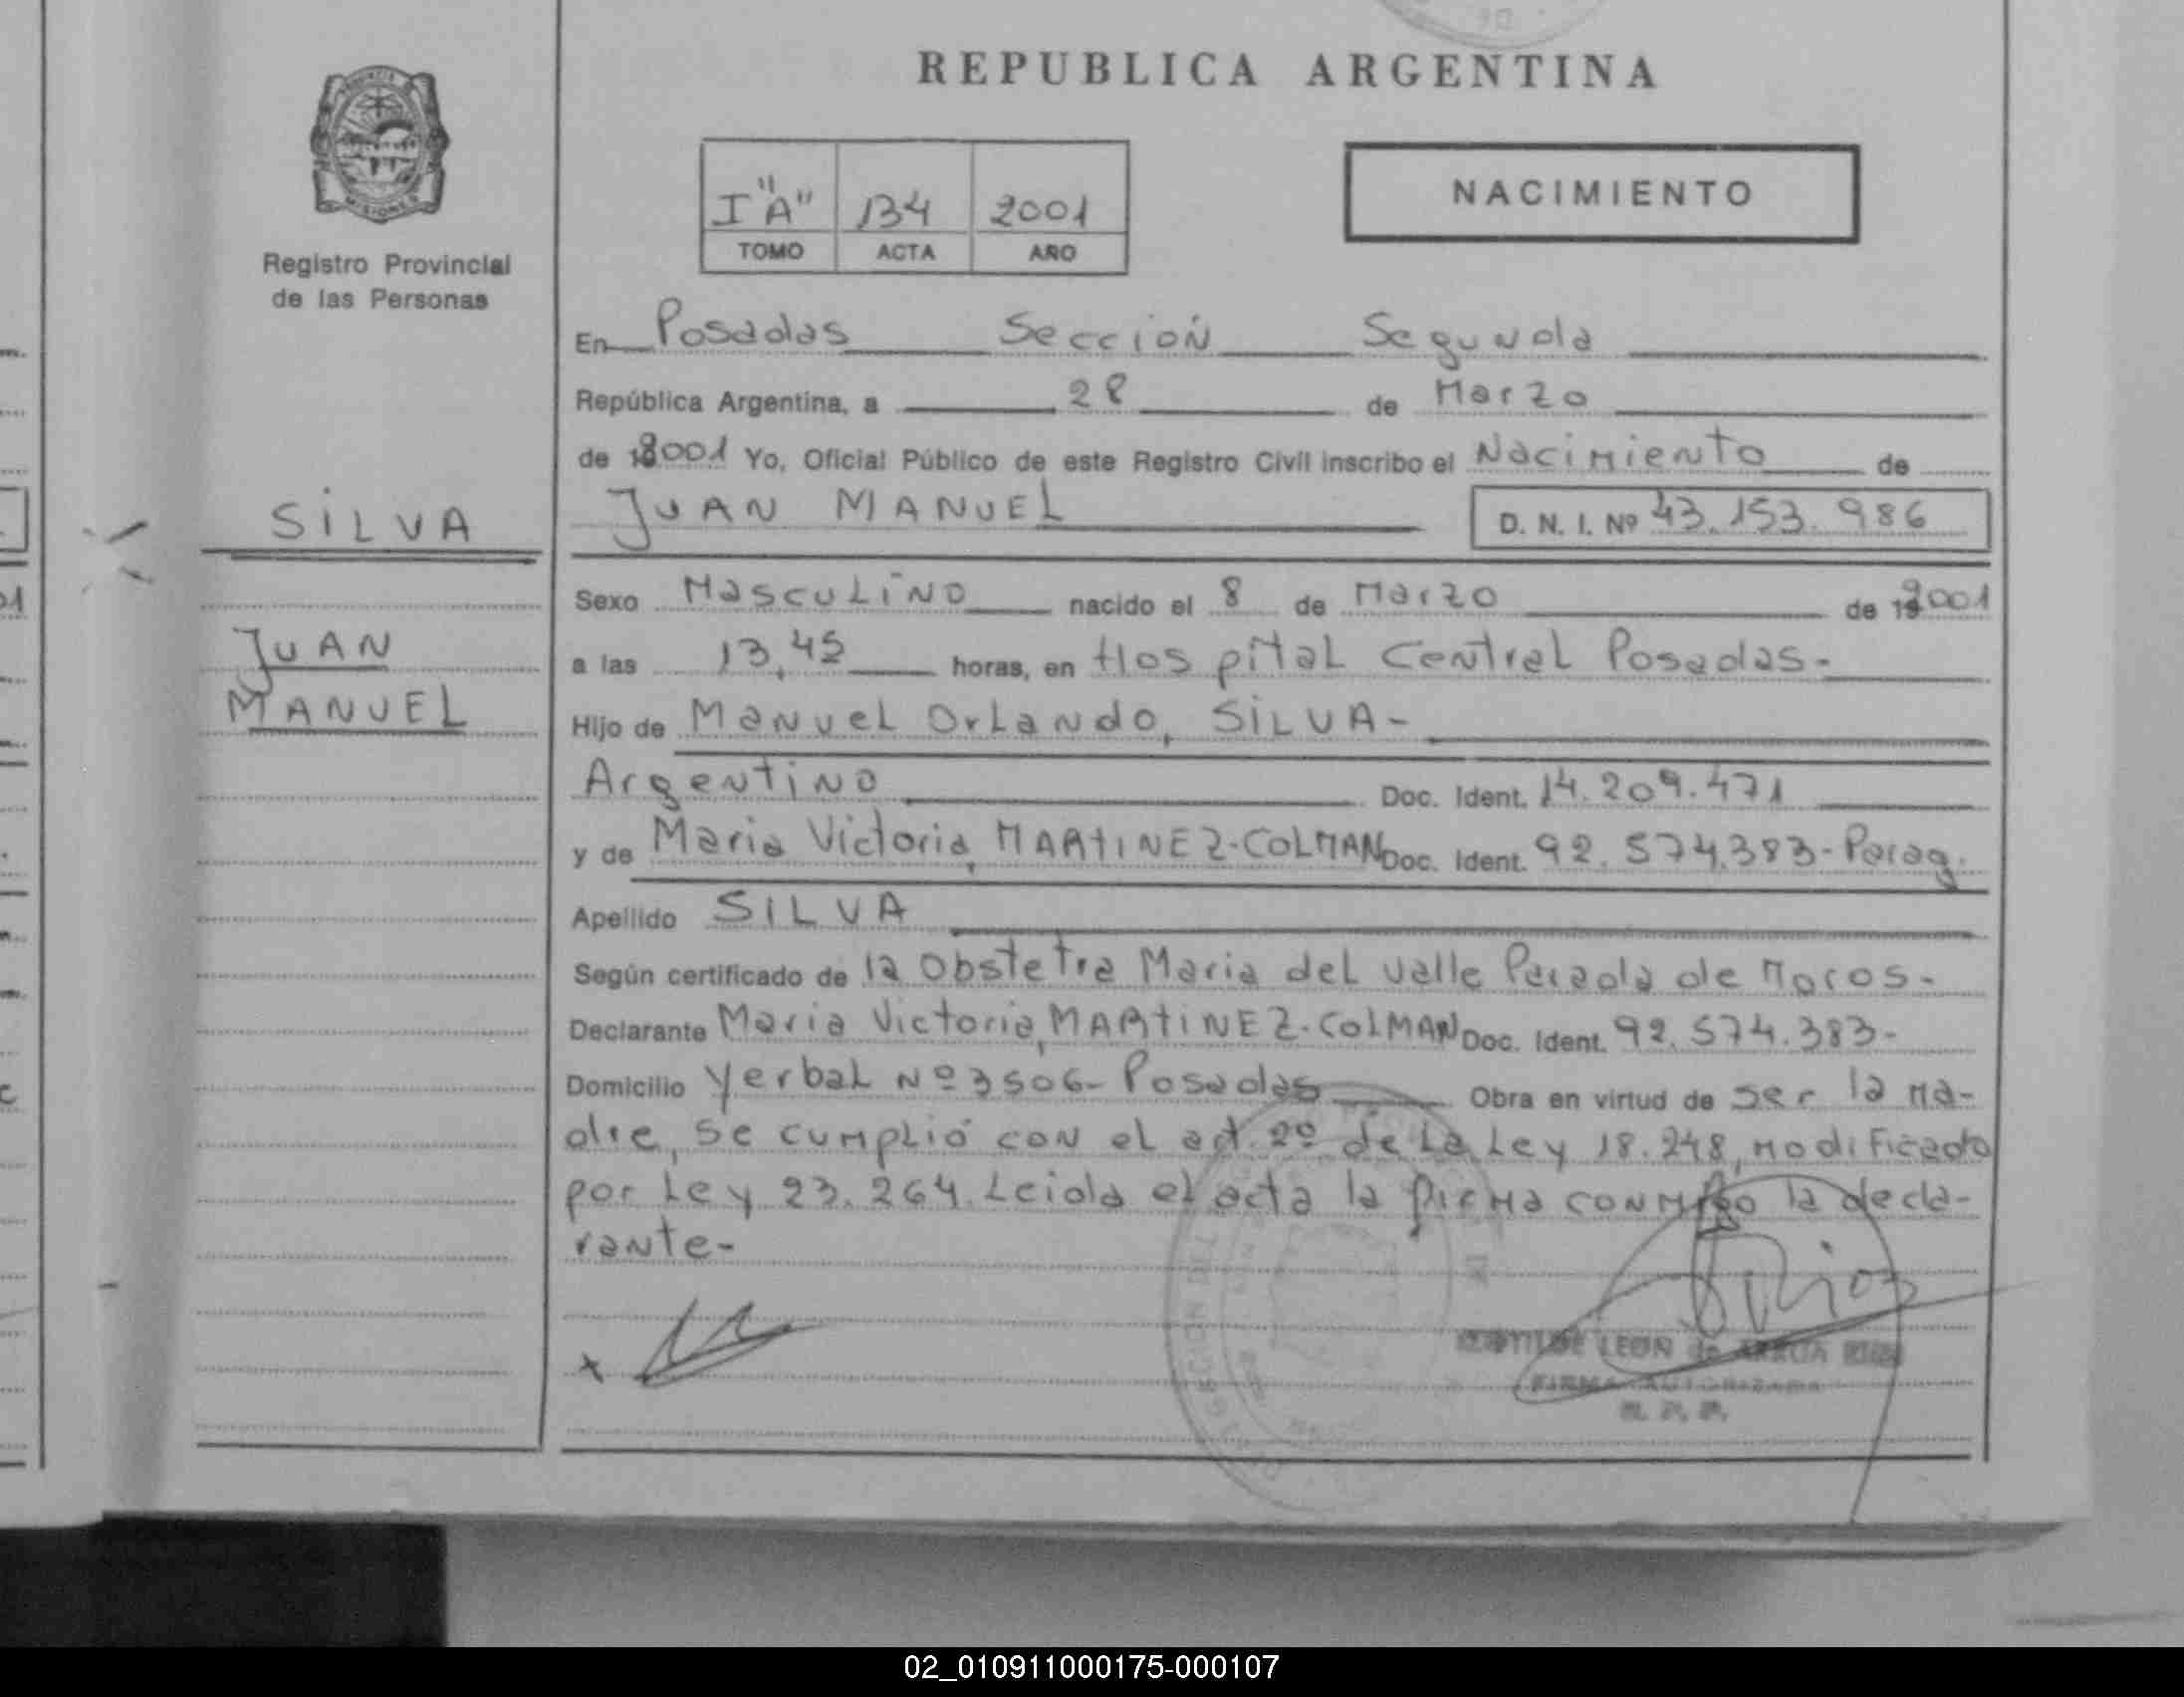 REPUBLICA ARGENTINA
PROVINCIA
MISIONES
Registro Provincial
de las Personas
I "A" 134 2001
TOMO ACTA AÑO
NACIMIENTO
En Posadas Sección Segunda
República Argentina, a 28 de Marzo
de 2001 Yo, Oficial Público de este Registro Civil inscribo el Nacimiento de
SILVA
JUAN MANUEL D. N. I. Nº 43.153.986
Sexo Masculino nacido el 8 de Marzo de 2001
JUAN
MANUEL
a las 13,45 horas, en Hospital Central Posadas-
Hijo de Manuel Orlando, SILVA-
Argentino Doc. Ident. 14.209.471
y de Maria Victoria, MARTINEZ-COLMAN Doc. Ident. 92.574.383-Parag.
Apellido SILVA
Según certificado de la Obstetra Maria del Valle de
Declarante Maria Victoria, MARTINEZ-COLMAN Doc. Ident. 92.574.383-
Domicilio Yerbal Nº 3506- Posadas Obra en virtud de ser la ma-
dre, se cumplió con el art. 2º de la Ley 18.248, modificado
por Ley 23.264. Leida el acta la firma conmigo la decla-
rante-
LEON de ARRUA
FIRMA AUTORIZADA
02_010911000175-000107